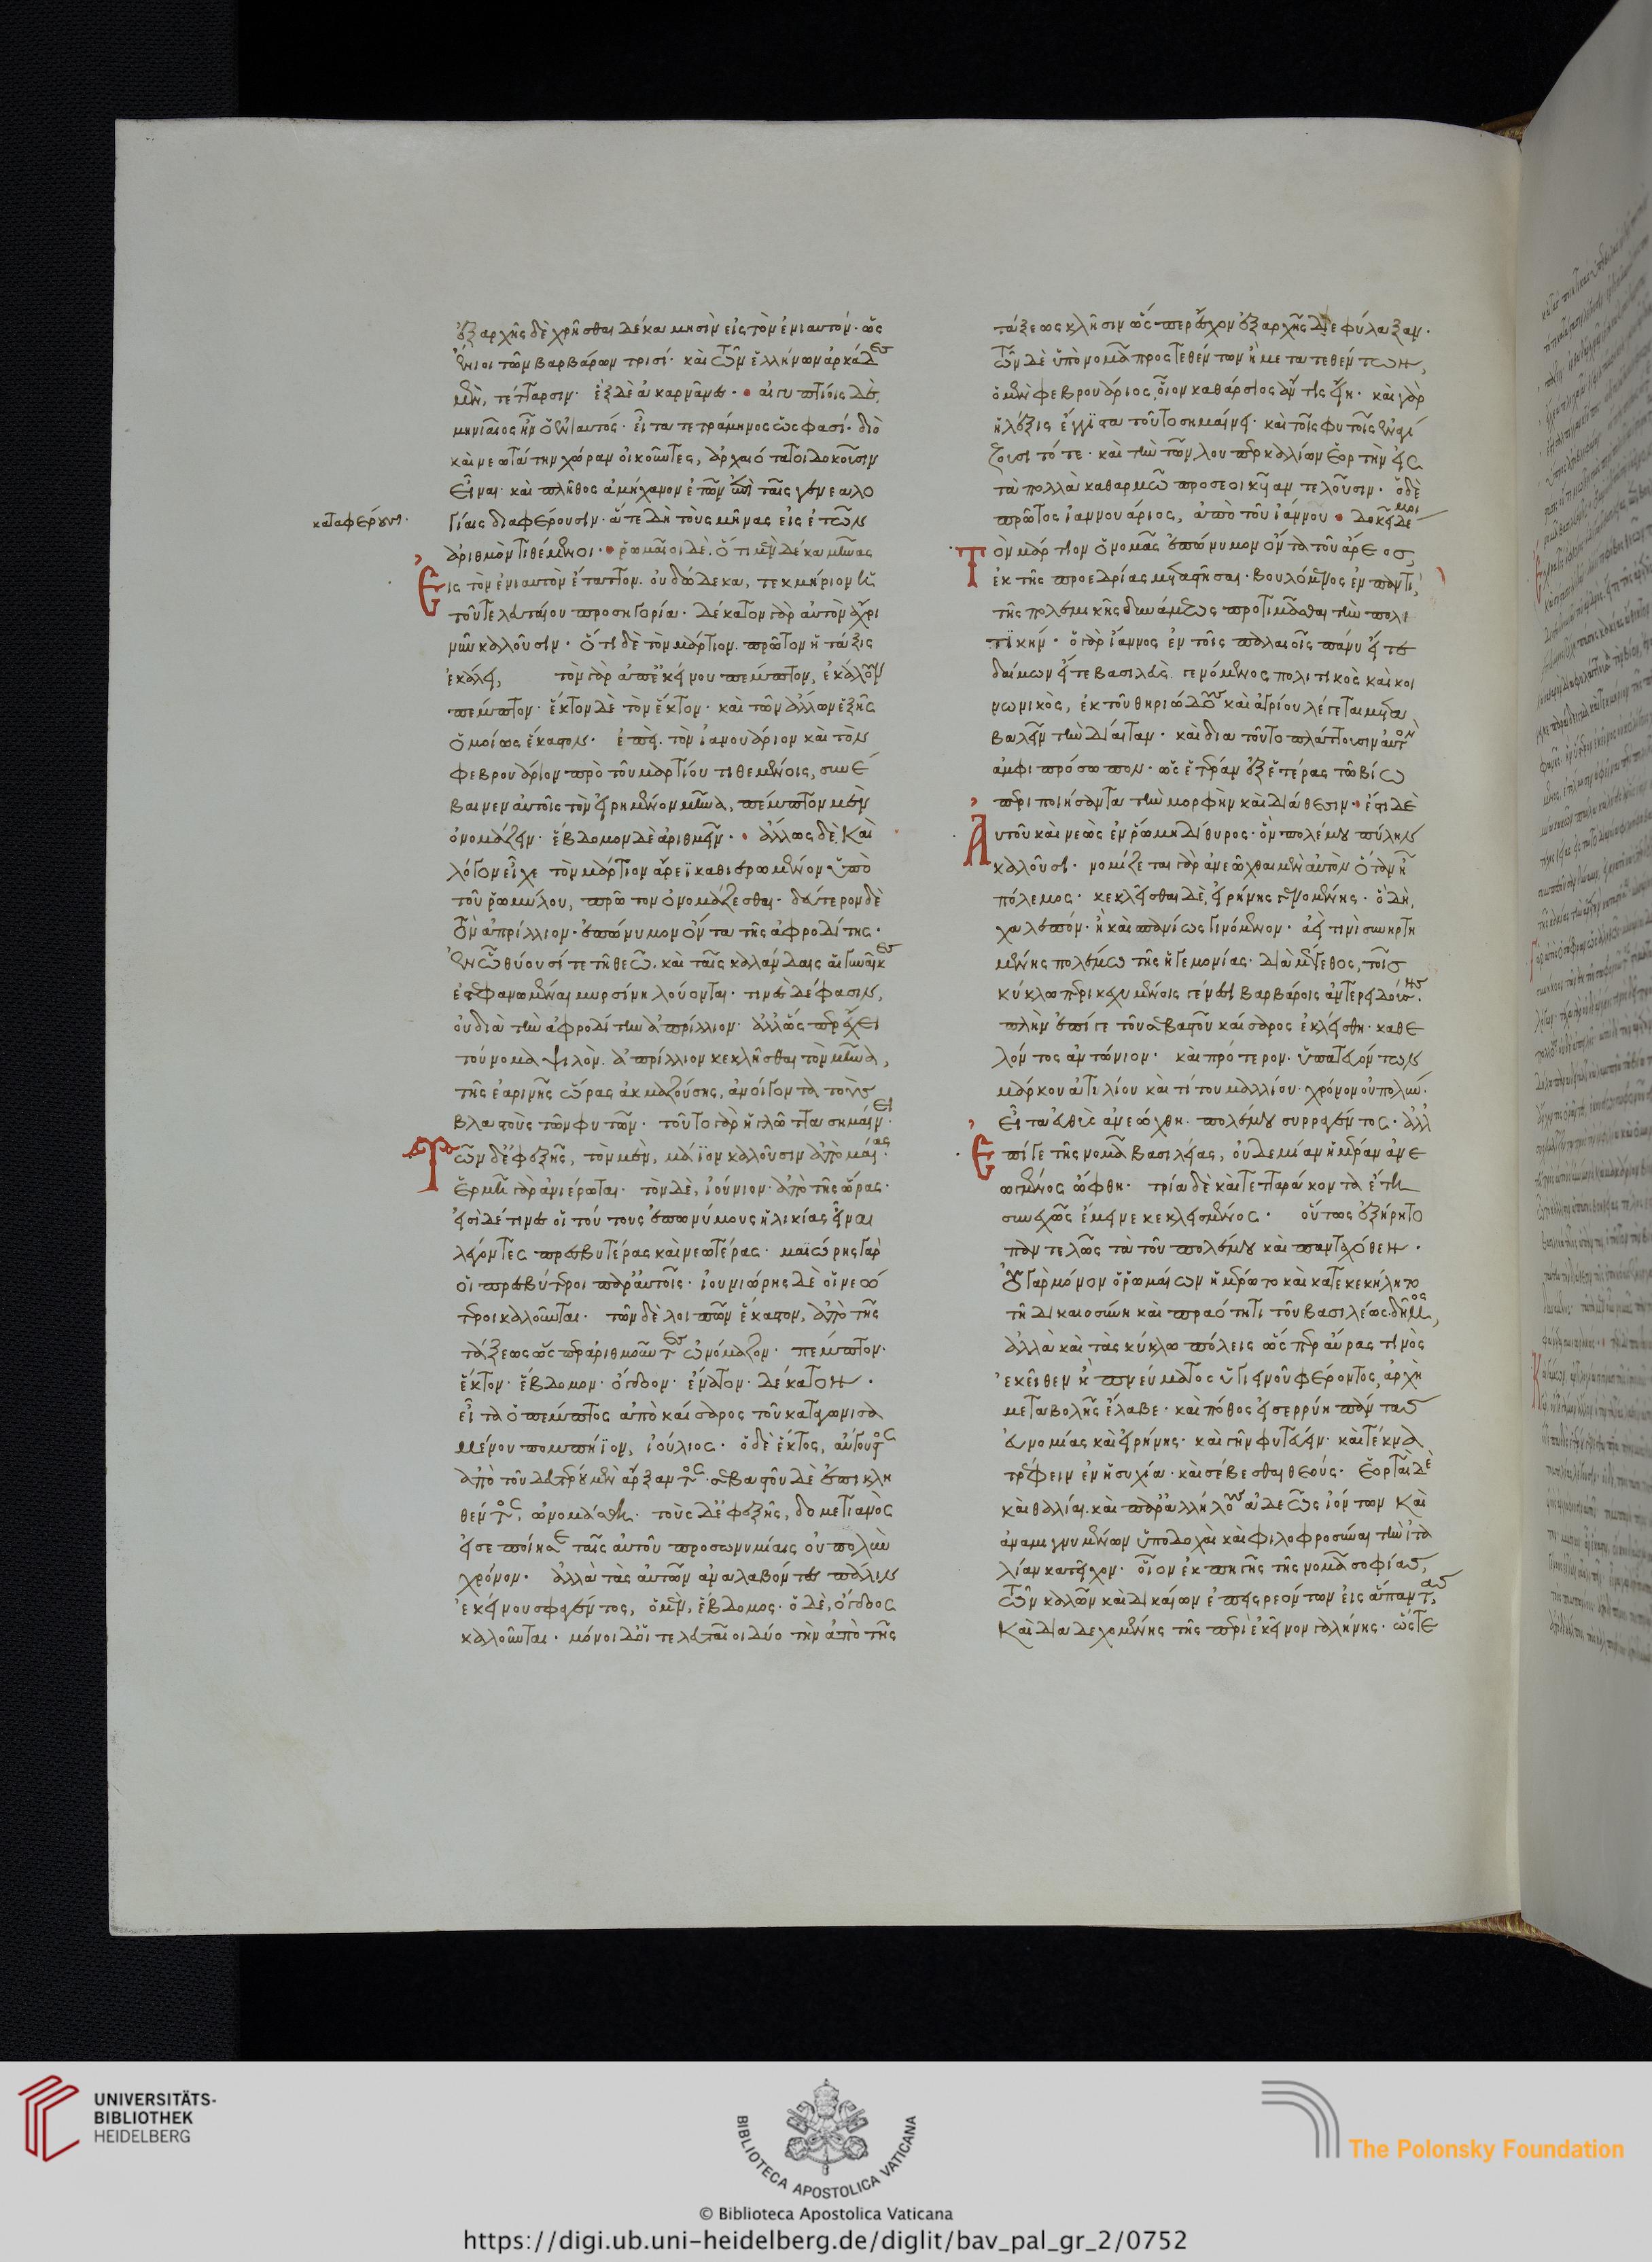 ἐξαρχῆς δὲ χρῆσθαι δέκα μησὶν εἰς τὸν ἐνιαυτόν· ὡς
ἔνιοι τῶν βαρβάρων τρισί· καὶ τῶν ἑλλήνων ἀρκάδες
μὲν, τέτταρσιν· ἓξ δὲ ἀκαρνᾶνες· αἰγυπτίοις δὲ,
μηνιαῖος ἦν ὁ ἐνιαυτός· εἶτα τετράμηνος ὥς φασί· διὸ
καὶ νεωτάτην χώραν οἰκοῦντες, ἀρχαιότατοι δοκοῦσιν
εἶναι· καὶ πλῆθος ἀμήχανον ἐτῶν ἐπὶ ταῖς γενεαλο
καταφέρουσι·
γίαις διαφέρουσιν· ἅτε δὴ τοὺς μῆνας εἰς ἐτῶν
ἀριθμὸν τιθέμενοι· ῥωμαῖοι δὲ. ὅτι μὲν δέκα μῆνας
εἰς τὸν ἐνιαυτὸν ἔταττον. οὐ δώδεκα, τεκμήριον ἡ
τοῦ τελευταίου προσηγορία· δέκατον γὰρ αὐτὸν ἄχρι
νῦν καλοῦσιν· ὅτι δὲ τὸν μάρτιον. πρῶτον ἡ τάξις
ἐκάλει, τὸν γὰρ ἀπ' ἐκείνου πέμπτον, ἐκάλουν
πέμπτον· ἕκτον δὲ τὸν ἕκτον· καὶ τῶν ἄλλων ἑξῆς
ὁμοίως ἕκαστον· ἐπεὶ. τὸν ἰανουάριον καὶ τὸν
φεβρουάριον πρὸ τοῦ μαρτίου τιθεμένοις, συνέ
βαινεν αὐτοῖς τὸν εἰρημένον μῆνα, πέμπτον μὲν
ὀνομάζειν· ἕβδομον δὲ ἀριθμεῖν· ἄλλως δὲ. καὶ
λόγον εἶχε τὸν μάρτιον ἄρεϊ καθιερωμένον ὑπὸ
τοῦ ῥωμύλου, πρῶτον ὀνομάζεσθαι· δεύτερον δὲ
τὸν ἀπρίλλιον· ἐπώνυμον ὄντα τῆς ἀφροδίτης·
ἐν ᾧ θύουσί τε τῇ θεῷ. καὶ ταῖς καλάνδαις αἱ γυναῖκες
ἐστεφανωμέναι μυρσίνῃ λούονται· τινὲς δέ φασιν,
οὐ διὰ τὴν ἀφροδίτην ἀπρίλλιον· ἀλλ' ὥσπερ ἔχει
τούνομα ψιλὸν. ἀπρίλλιον κεκλῆσθαι τὸν μῆνα,
τῆς ἐαρινῆς ὥρας ἀκμαζούσης, ἀνοίγοντα τοὺς
βλαστοὺς τῶν φυτῶν· τοῦτο γὰρ ἡ γλῶττα σημαίνει·
τῶν δ' ἐφεξῆς, τὸν μὲν, μάϊον καλοῦσιν ἀπὸ μαίας·
ἑρμῇ γὰρ ἀνιέρωται· τὸν δὲ, ἰούνιον· ἀπὸ τῆς ὥρας·
εἰσὶ δέ τινες οἳ τούτους ἐπωνύμους ἡλικίας εἶναι
λέγοντες πρεσβυτέρας καὶ νεωτέρας· μαϊώρης γὰρ
οἱ πρεσβύτεροι παρ' αὐτοῖς· ἰουνιώρης δὲ οἱ νεώ
τεροι καλοῦνται· τῶν δὲ λοιπῶν ἕκαστον, ἀπὸ τῆς
τάξεως ὥσπερ ἀριθμοῦντες ὠνόμαζον· πέμπτον·
ἕκτον· ἕβδομον· ὄγδοον· ἔνατον· δέκατον·
εἶτα ὁ πέμπτος ἀπὸ καίσαρος τοῦ καταγωνισα
μένου πομπήϊον, ἰούλιος· ὁ δὲ ἕκτος, αὔγουστος
ἀπὸ τοῦ δευτέρου μὲν ἄρξαντος· σεβαστοῦ δὲ ἐπικλη
θέντος, ὠνομάσθη· τοὺς δ' ἐφεξῆς, δομετιανὸς
εἰσεποίησε ταῖς αὑτοῦ προσωνυμίαις οὐ πολὺν
χρόνον· ἀλλὰ τὰς αὑτῶν ἀναλαβόντες πάλιν
ἐκείνου σφαγέντος, ὁ μὲν, ἕβδομος· ὁ δὲ, ὄγδοος
καλοῦνται· μόνοι δ' οἱ τελευταῖοι δύο τὴν ἀπὸ τῆς
τάξεως κλῆσιν ὥσπερ ἔσχον ἐξαρχῆς διεφύλαξαν·
τῶν δὲ ὑπὸ νομᾶ προστεθέντων ἢ μετατεθέντων,
ὁ μὲν φεβρουάριος, οἷον καθάρσιος ἄν τις εἴη· καὶ γὰρ
ἡ λέξις ἔγγιστα τοῦτο σημαίνει· καὶ τοῖς φυτοῖς ἐναγί
ζουσι τότε· καὶ τὴν τῶν λουπερκαλίων ἑορτὴν εἰς
τὰ πολλὰ καθαρμῷ προσεοικυῖαν τελοῦσιν· ὁ δὲ
πρῶτος ἰαννουάριος, ἀπὸ τοῦ ἰάννου· δοκεῖ δέ μοι
τὸν μάρτιον ὁ νομᾶς ἐπώνυμον ὄντα τοῦ ἄρεος,
ἐκ τῆς προεδρίας μεταστῆσαι· βουλόμενος ἐν παντὶ,
τῆς πολεμικῆς δυνάμεως προτιμᾶσθαι τὴν πολι
τικήν· ὁ γὰρ ἴαννος ἐν τοῖς παλαιοῖς πάνυ εἴτε
δαίμων εἴτε βασιλεὺς. γενόμενος πολιτικὸς καὶ κοι
νωνικὸς, ἐκ τοῦ θηριώδους καὶ ἀγρίου λέγεται μετα
βαλεῖν τὴν δίαιταν· καὶ διὰ τοῦτο πλάττουσιν αὐτὸν
ἀμφιπρόσωπον· ὡς ἑτέραν ἐξ ἑτέρας τῷ βίῳ
περιποιήσαντα τὴν μορφὴν καὶ διάθεσιν· ἔστι δὲ
αὐτοῦ καὶ νεὼς ἐν ῥώμῃ δίθυρος· ὃν πολέμου πύλην
καλοῦσι· νομίζεται γὰρ ἀνεῷχθαι μὲν αὐτὸν ὅταν ᾖ
πόλεμος· κεκλεῖσθαι δὲ, εἰρήνης γενομένης· ὃ δὴ,
χαλεπόν· ἢ καὶ σπανίως γινόμενον· ἀεί τινι συνηρτη
μένης πολέμῳ τῆς ἡγεμονίας· διὰ μέγεθος, τοῖς
κύκλῳ περικεχυμένοις γένεσι βαρβάροις ἀντερειδούσης·
πλὴν ἐπί γε τοῦ σεβαστοῦ καίσαρος ἐκλείσθη· καθε
λόντος ἀντώνιον· καὶ πρότερον. ὑπατευόντων
μάρκου ἀτιλίου καὶ τίτου μαλλίου· χρόνον οὐ πολύν·
εἶτα εὐθὺς ἀνεῴχθη. πολέμου συρραγέντος· ἀλλ'
ἐπί γε τῆς νομᾶ βασιλείας, οὐδεμίαν ἡμέραν ἀνε
ῳγμένος ὤφθη· τρία δὲ καὶ τετταράκοντα ἔτη
συνεχῶς ἔμεινε κεκλεισμένος· οὕτως ἐξῄρητο
παντελῶς τὰ τοῦ πολέμου καὶ πανταχόθεν·
οὐ γὰρ μόνον ὁ ῥωμαίων ἡμέρωτο καὶ κατεκεκήλητο
τῇ δικαιοσύνῃ καὶ πραότητι τοῦ βασιλέως δῆμος,
ἀλλὰ καὶ τὰς κύκλῳ πόλεις ὥσπερ αὔρας τινὸς
ἐκεῖθεν ἢ πνεύματος ὑγιεινοῦ φέροντος, ἀρχὴ
μεταβολῆς ἔλαβε· καὶ πόθος εἰσερρύη πάντας
εὐνομίας καὶ εἰρήνης· καὶ γῆν φυτεύειν· καὶ τέκνα
τρέφειν ἐν ἡσυχίᾳ· καὶ σέβεσθαι θεούς· ἑορταὶ δὲ
καὶ θαλίαι. καὶ παρ' ἀλλήλους ἀδεῶς ἰόντων καὶ
ἀναμιγνυμένων ὑποδοχαὶ καὶ φιλοφροσύναι τὴν ἰτα
λίαν κατεῖχον· οἷον ἐκ πηγῆς τῆς νομᾶ σοφίας,
τῶν καλῶν καὶ δικαίων ἐπεισρεόντων εἰς ἅπαντας,
καὶ διαδεχομένης τῆς περὶ ἐκεῖνον γαλήνης· ὥστε
UNIVERSITÄTS-
BIBLIOTHEK
HEIDELBERG
BIBLIOTECA APOSTOLICA VATICANA
The Polonsky Foundation
© Biblioteca Apostolica Vaticana
https://digi.ub.uni-heidelberg.de/diglit/bav_pal_gr_2/0752